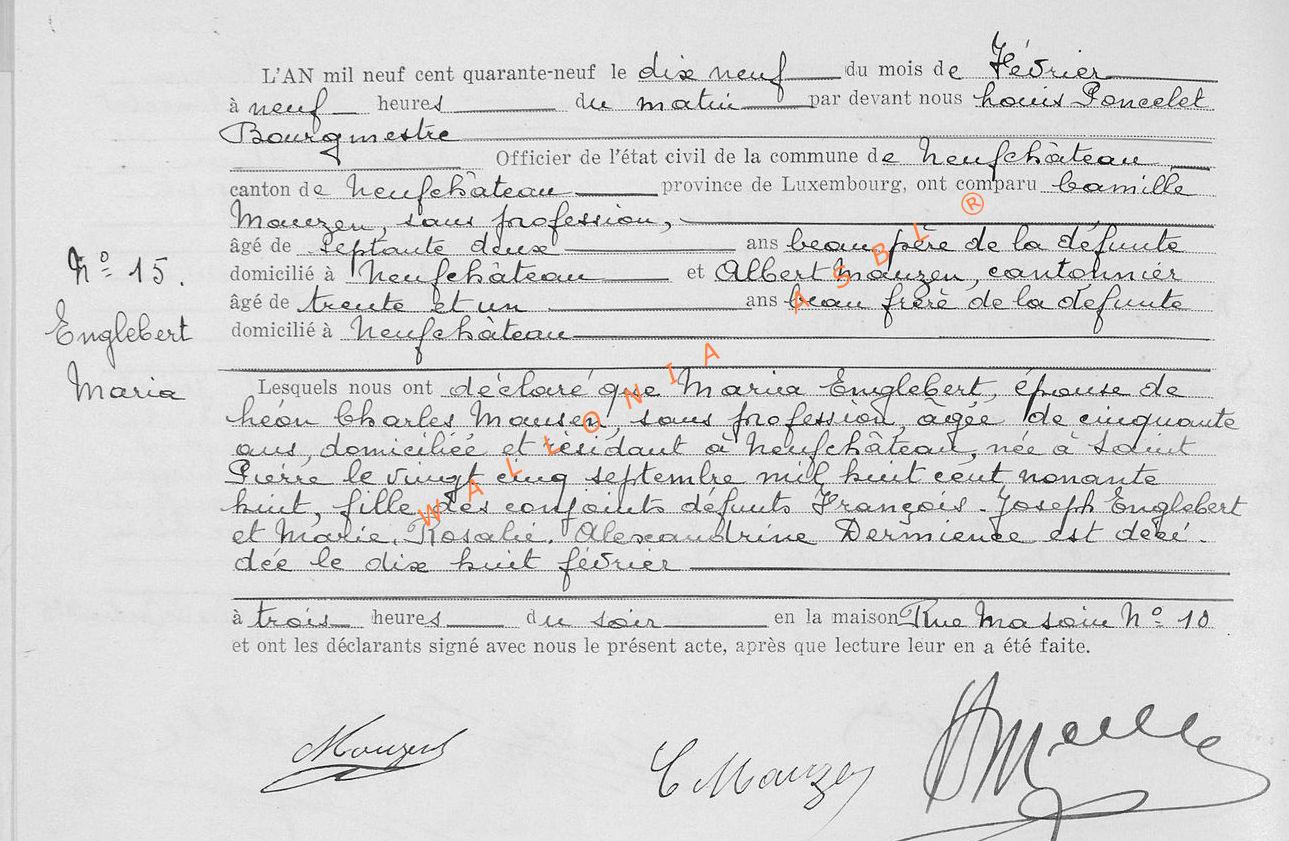 L'AN mil neuf cent quarante-neuf le dix neuf du mois de Février
à neuf heures du matin par devant nous Louis Poncelet
Bourgmestre
Officier de l'état civil de la commune de Neufchâteau
canton de Neufchâteau province de Luxembourg, ont comparu Camille
Mauzen, sans profession,
âgé de septante deux ans beau père de la défunte
domicilié à Neufchâteau et Albert Mauzen, cantonnier
âgé de trente et un ans beau frère de la défunte
domicilié à Neufchâteau
N° 15.
Englebert
Maria
Lesquels nous ont déclaré que Maria Englebert, épouse de
Léon Charles Mausen, sans profession, âgée de cinquante
ans, domiciliée et résidant à Neufchâteau, née à Saint
Pierre le vingt cinq septembre mil huit cent nonante
huit, fille des conjoints défunts François-Joseph Englebert
et Marie. Rosalie. Alexandrine Dermience est décé-
dée le dix huit février
à trois heures du soir en la maison Rue Masoin N° 10
et ont les déclarants signé avec nous le présent acte, après que lecture leur en a été faite.
Mauzen
C Mauzen
WALLONIA ASBL ®